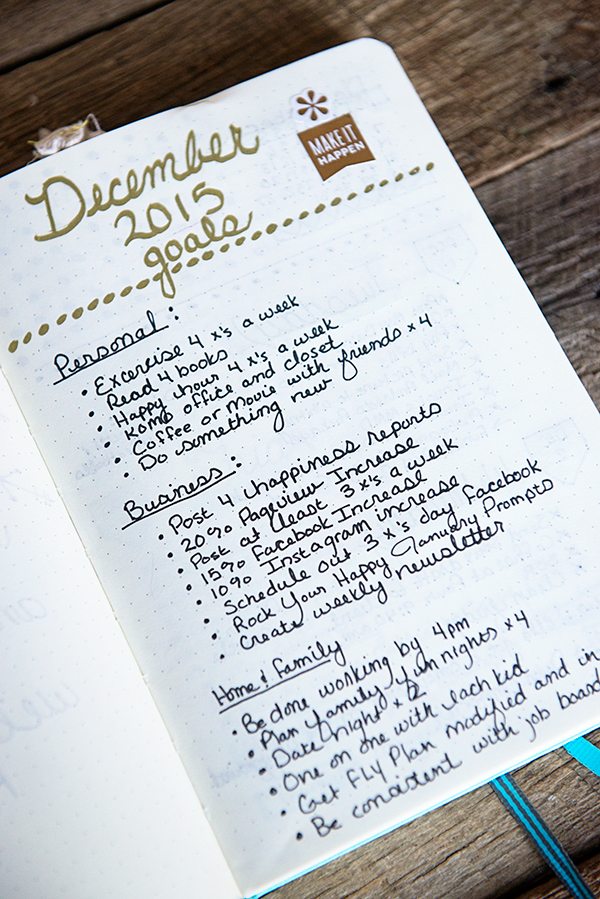 December
2015
goals
MAKE IT
HAPPEN
Personal:
• Excercise 4 x's a week
• Read 4 books
• Happy hour 4 x's a week
• KonMo office and closet
• Coffee or Movie with friends x 4
• Do something new
Business:
• Post 4 happiness reports
• 20% Pageview Increase
• Post at least 3 x's a week
• 15% Facebook Increase
• 10% Instagram increase
• Schedule out 3 x's day Facebook
• Rock Your Happy January Prompts
• Create weekly newsletter
Home & Family
• Be done working by 4pm
• Plan family fun nights x 4
• Date night x 2
• One on one with each kid
• Get FLY Plan modified and in
• Be consistent with job board